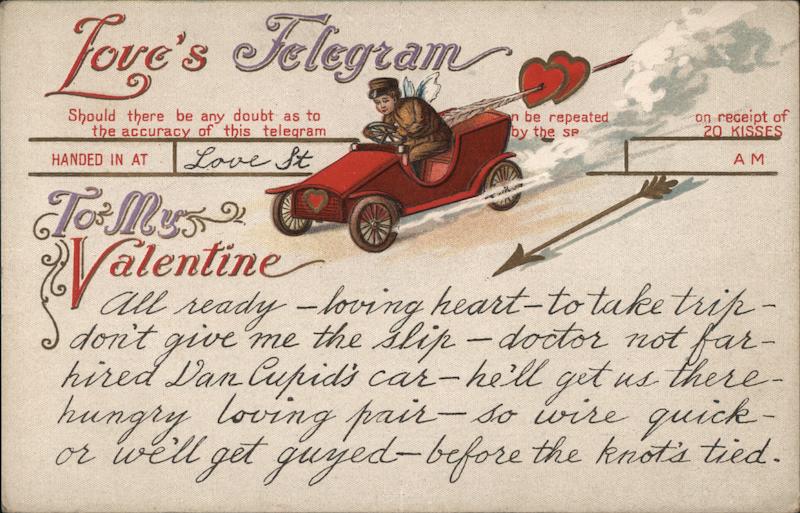 Love's Telegram
Should there be any doubt as to
the accuracy of this telegram
n be repeated
by the se
on receipt of
20 KISSES
HANDED IN AT
Love St
AM
To My
Valentine
All ready – loving heart – to take trip –
don't give me the slip – doctor not far –
hired Dan Cupid's car – he'll get us there –
hungry loving pair – so wire quick –
or we'll get guyed – before the knot's tied.